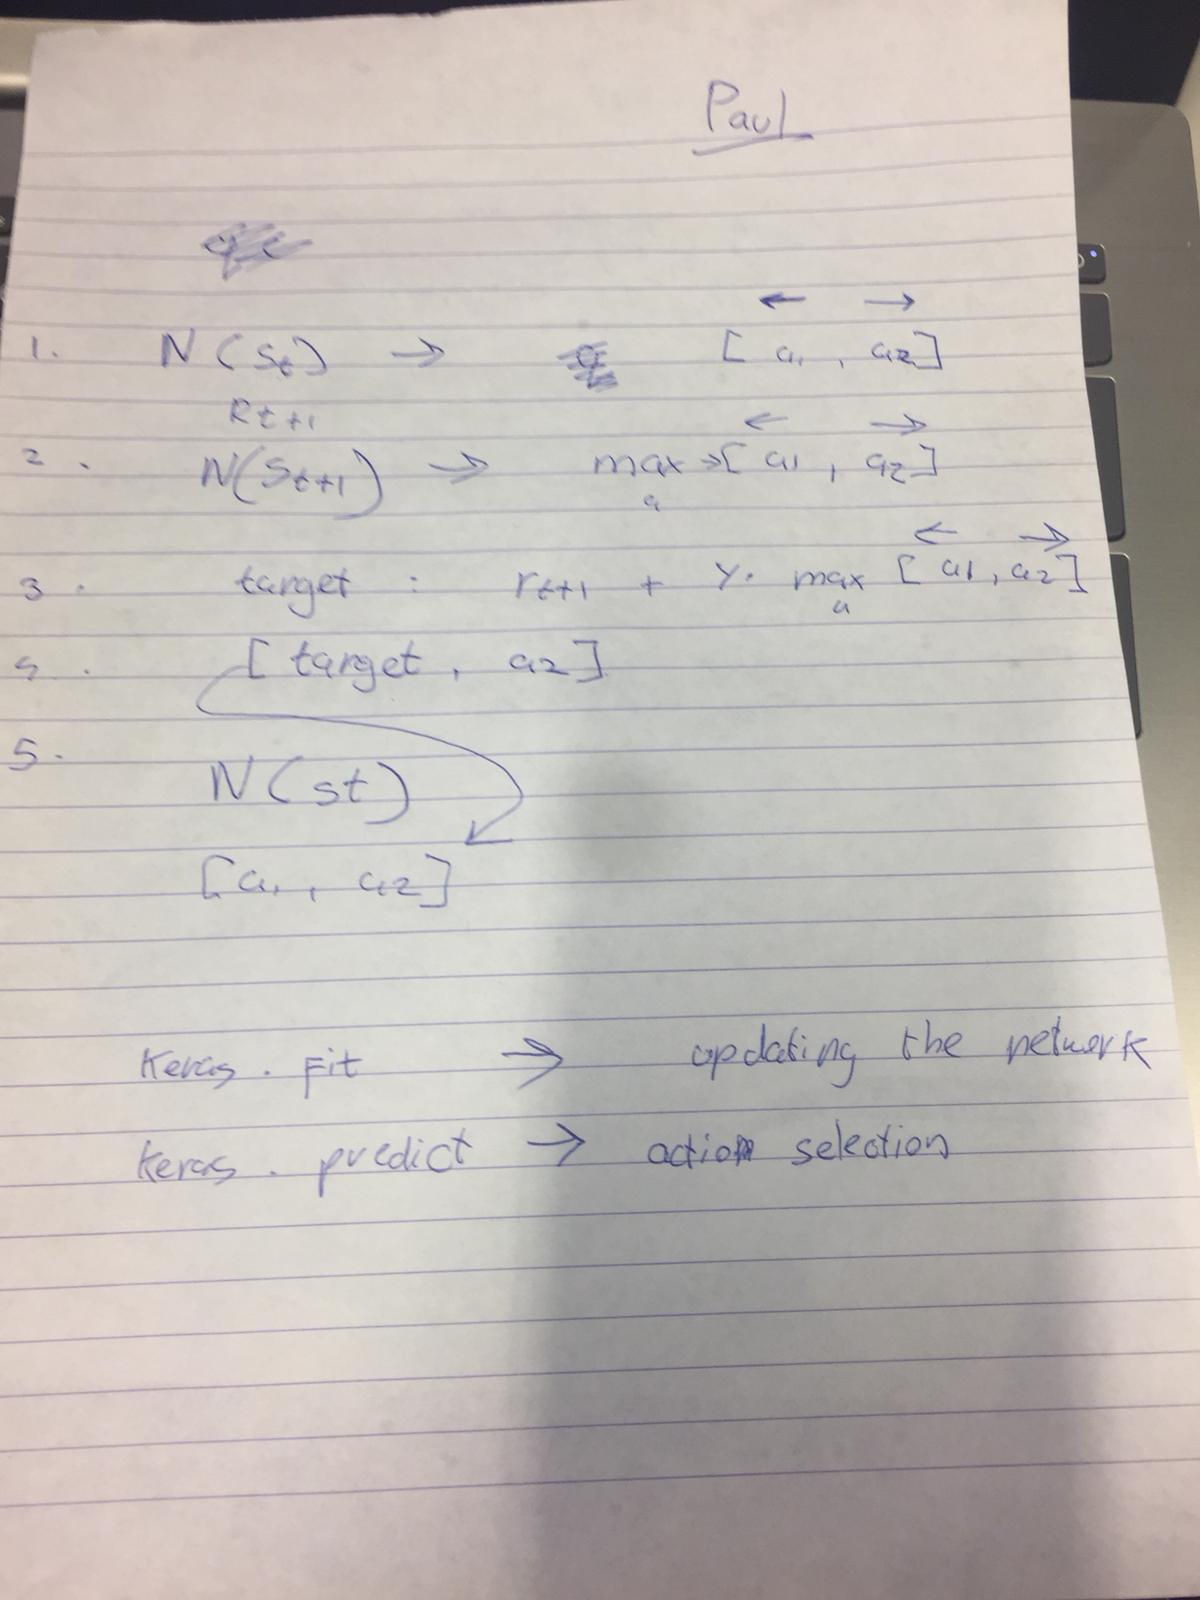 Paul
← →
1. N(St) → [a1, a2]
Rt+1 ← →
2. N(St+1) → max a → [a1, a2]
← →
3. target : rt+1 + γ. max a [a1, a2]
4. [target, a2]
5. N(st)
[a1, a2]
Keras. Fit → updating the network
Keras. predict → action selection